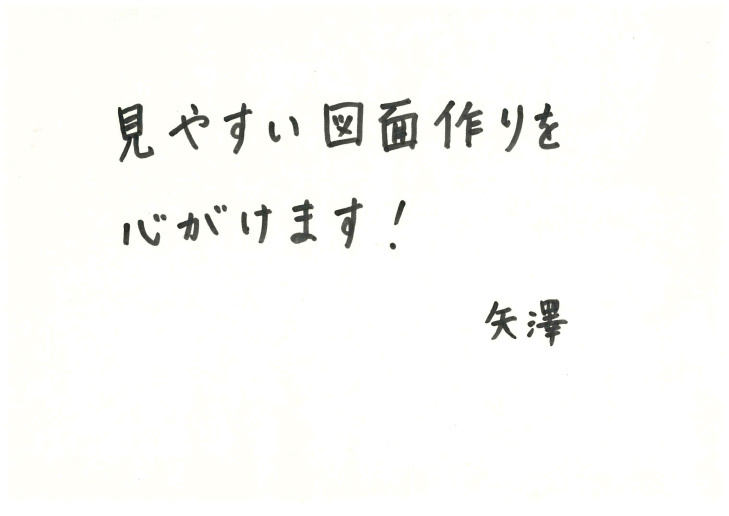 見やすい図面作りを
心がけます！
矢澤